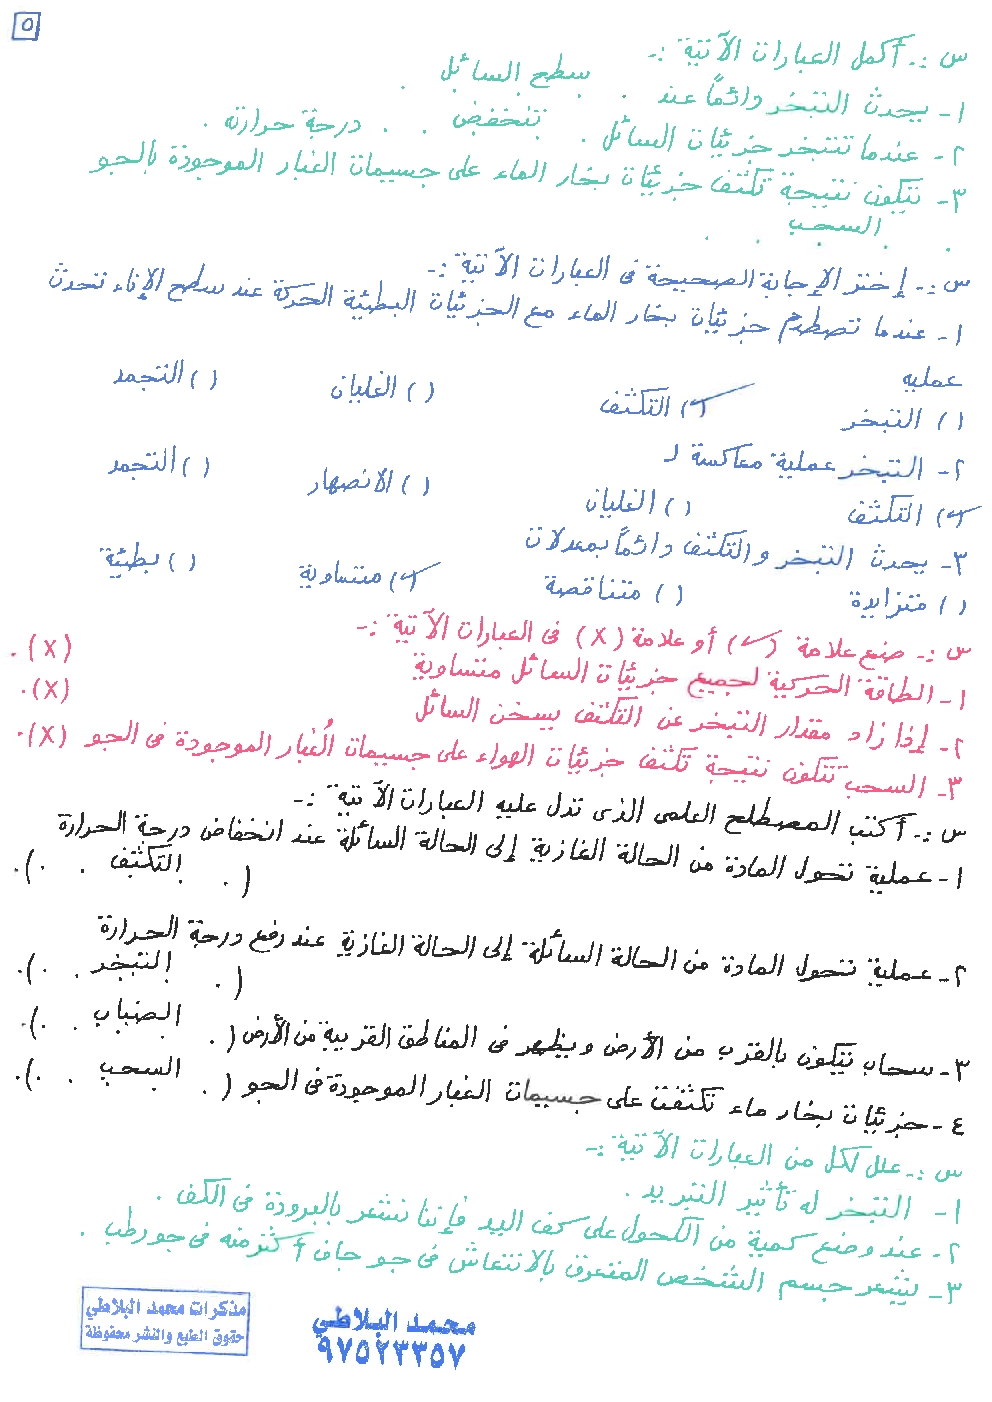 ٥
س :- أكمل العبارات الآتية :-
١- يحدث التبخر دائماً عند . سطح السائل .
٢- عندما تتبخر جزئيات السائل . تنخفض . . درجة حرارته .
٣- تتكون نتيجة تكثف جزئيات بخار الماء على جسيمات الغبار الموجودة بالجو
. السحب . .
س :- إختر الإجابة الصحيحة فى العبارات الآتية :-
١- عندما تصطدم جزئيات بخار الماء مع الجزئيات البطيئة الحركة عند سطح الإناء تحدث
عملية
( ) التبخر (✓) التكثف ( ) الغليان ( ) التجمد
٢- التبخر عملية معاكسة لـ
(✓) التكثف ( ) الغليان ( ) الانصهار ( ) التجمد
٣- يحدث التبخر والتكثف دائماً بمعدلات
( ) متزايدة ( ) متناقصة (✓) متساوية ( ) بطيئة
س :- ضع علامة (✓) أو علامة (X) فى العبارات الآتية :-
١- الطاقة الحركية لجميع جزئيات السائل متساوية (X).
٢- إذا زاد مقدار التبخر عن التكثف يسخن السائل (X).
٣- السحب تتكون نتيجة تكثف جزئيات الهواء على جسيمات الغبار الموجودة فى الجو (X).
س :- أكتب المصطلح العلمى الذى تدل عليه العبارات الآتية :-
١- عملية تحول المادة من الحالة الغازية إلى الحالة السائلة عند انخفاض درجة الحرارة
( . التكثف . . ).
٢- عملية تتحول المادة من الحالة السائلة إلى الحالة الغازية عند رفع درجة الحرارة
( . التبخر . . ).
٣- سحاب تتكون بالقرب من الأرض ويظهر فى المناطق القريبة من الأرض ( . الضباب . . ).
٤- جزئيات بخار ماء تكثفت على جسيمات الغبار الموجودة فى الجو ( . السحب . . ).
س :- علل لكل من العبارات الآتية :-
١- التبخر له تأثير التبريد .
٢- عند وضع كمية من الكحول على كف اليد فإننا نشعر بالبرودة فى الكف .
٣- يشعر جسم الشخص المتعرق بالانتعاش فى جو جاف أكثر منه فى جو رطب .
مذكرات محمد البلاطي
حقوق الطبع والنشر محفوظة
محمد البلاطي
٩٧٥٢٣٣٥٧